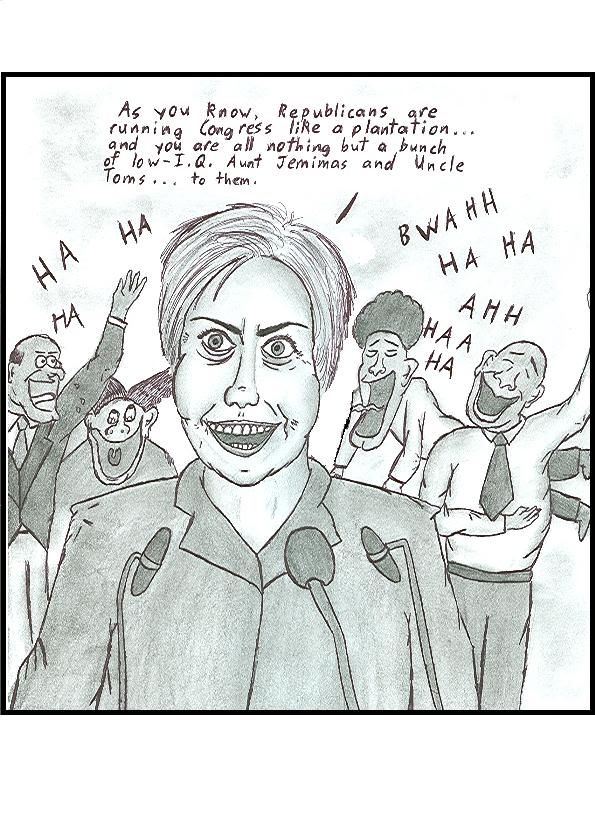 As you know, Republicans are
running Congress like a plantation...
and you are all nothing but a bunch
of low-I.Q. Aunt Jemimas and Uncle
Toms... to them.
HA HA
HA
BWAHH
HA HA
AHH
HAA
HA